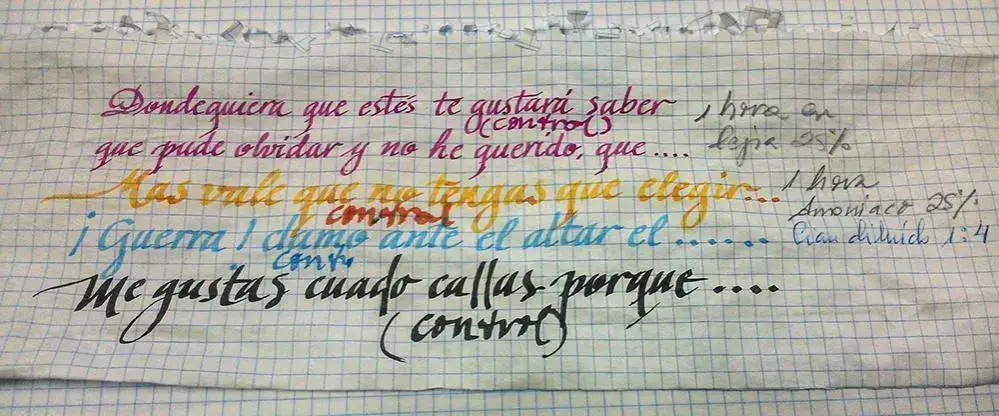 Dondequiera que estés te gustará saber 1 hora en
(control) lejia 25%
que pude olvidar y no he querido, que ....
Mas vale que no tengas que elegir... 1 hora
control Amoniaco 25%
¡Guerra! clamo ante el altar el ...... Cian diluido 1:4
contr.
Me gustas cuado callas porque ....
(control)